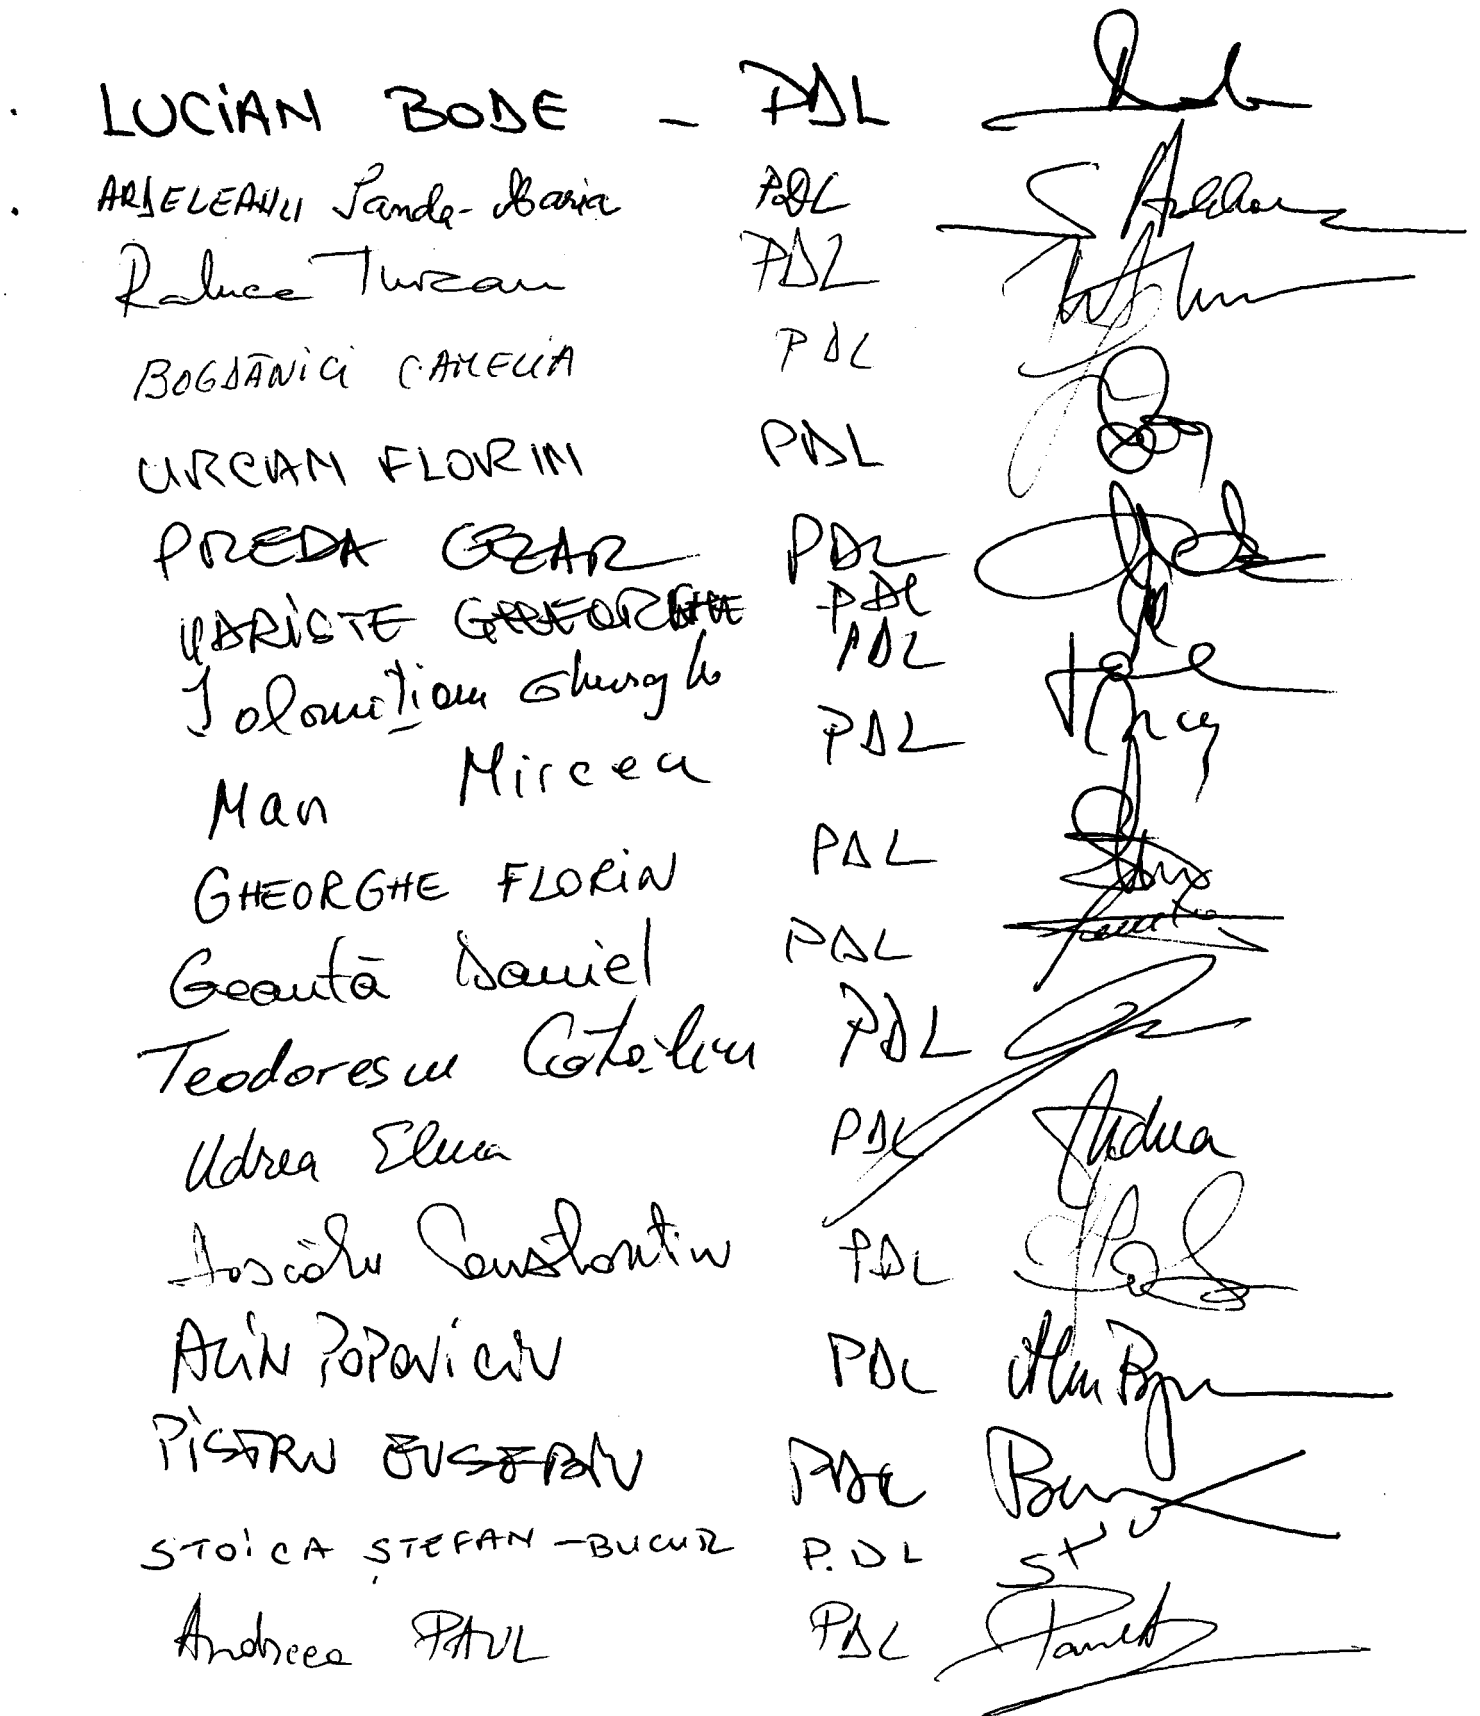 LUCIAN BODE - PDL
ARDELEANU Sanda-Maria PDL
Raluca Turcan PDL
BOGDĂNICI CAMELIA PDL
URCAN FLORIN PDL
PREDA CEZAR PDL
GHEORGHE PDL
Ialomițianu Gheorghe PDL
Man Mircea PDL
GHEORGHE FLORIN PDL
Geantă Daniel PDL
Teodorescu Cătălin PDL
Udrea Elena PDL
Dascălu Constantin PDL
ALIN POPOVICIU PDL
PISTRU EUSEBIU PDL
STOICA ȘTEFAN-BUCUR P.D L
Andreea PAUL PDL